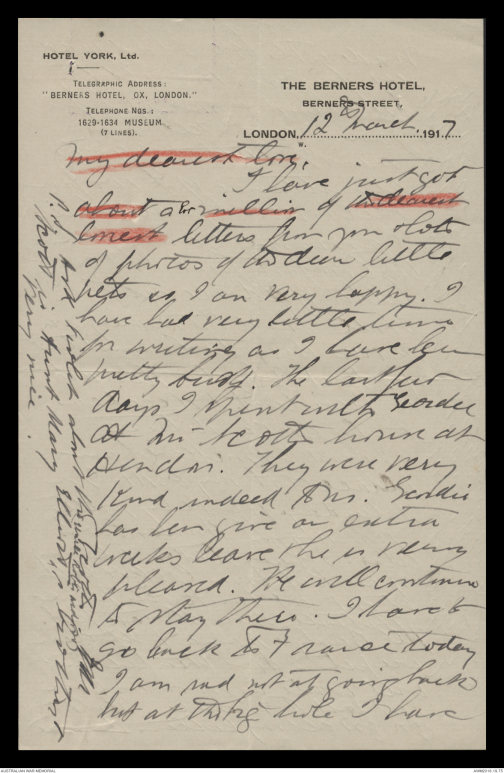 HOTEL YORK, Ltd.
TELEGRAPHIC ADDRESS:
"BERNERS HOTEL, OX, LONDON."
TELEPHONE NOS.:
1629-1634 MUSEUM
(7 LINES).
THE BERNERS HOTEL,
BERNERS STREET,
LONDON, 12 March 1917
W.
My dearest love,
I have just got
about a million of
letters from you & lots
of photos of the dear little
pets so I am very happy. I
have had very little time
for writing as I have been
pretty busy. The last few
days I spent with Geordie
at Mrs Scotts house at
Hendon. They were very
kind indeed to us. Geordie
has been give an extra
weeks leave & he is very
pleased. He will continue
to stay there. I have to
go back to France today
I am mad not at going back
but at the big hole I have
Scott is Aunt Mary Elliot's brother
very nice.
AUSTRALIAN WAR MEMORIAL